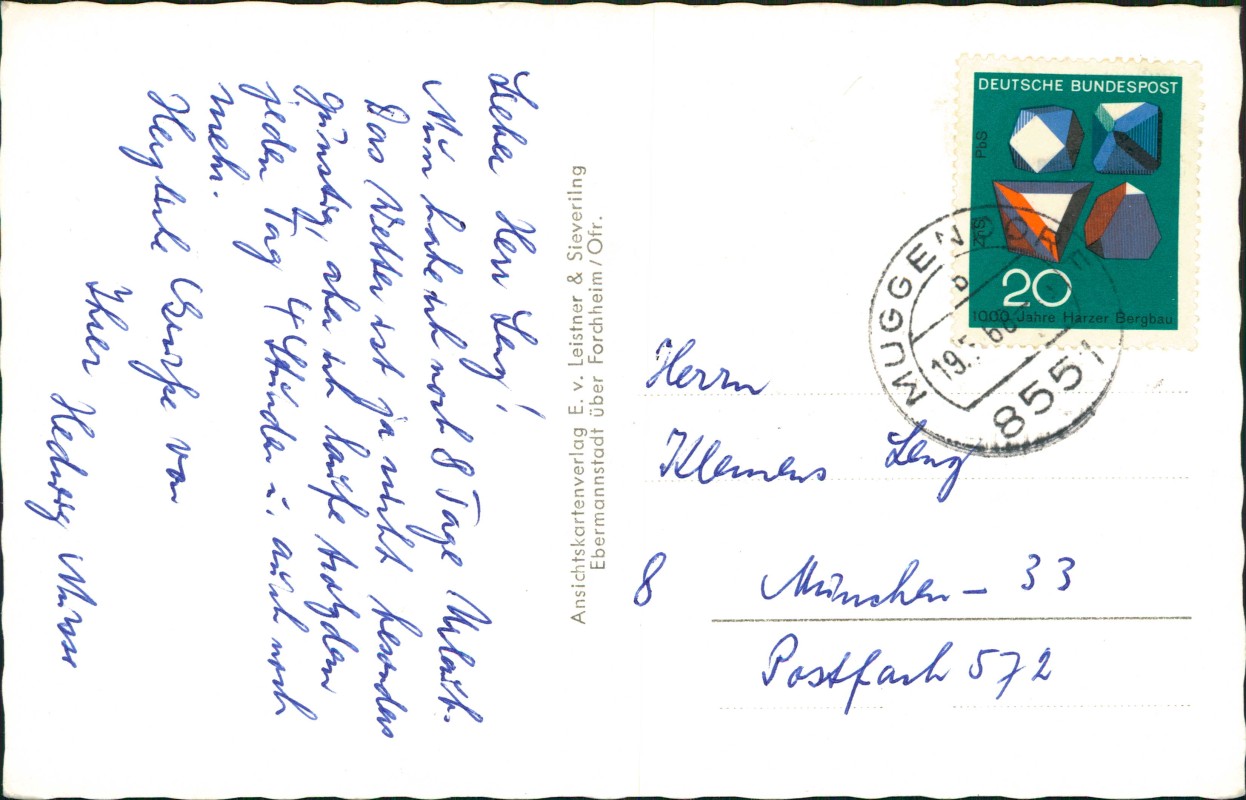 Lieber Herr Leng!
Nun habe ich noch 8 Tage Urlaub.
Das Wetter ist ja nicht besonders
günstig, aber ich laufe trotzdem
jeden Tag 4 Stunden u. auch noch
mehr.
Herzliche Grüße von
Ihrer Hedwig
Ansichtskartenverlag E. v. Leistner & Sieverilng
Ebermannstadt über Forchheim/Ofr.
DEUTSCHE BUNDESPOST
PbS
ZnS
20
1000 Jahre Harzer Bergbau
MUGGENDORF
b
19. 68
8551
Herrn
Klemens Leng
8 München - 33
Postfach 572